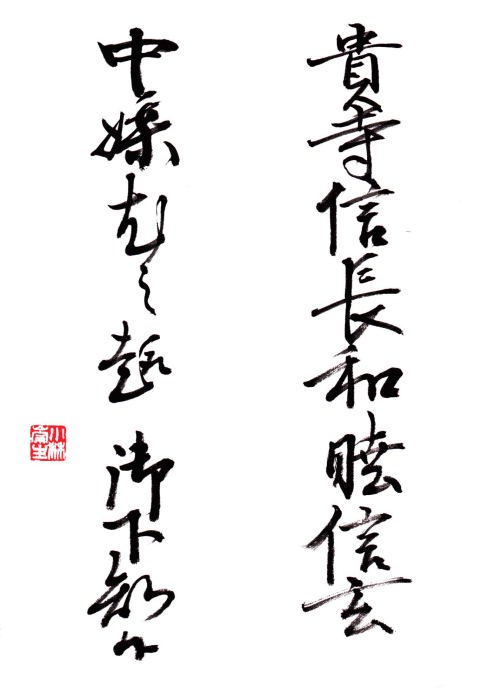 貴寺信長和睦信玄
中媒之趣 御下知
小林